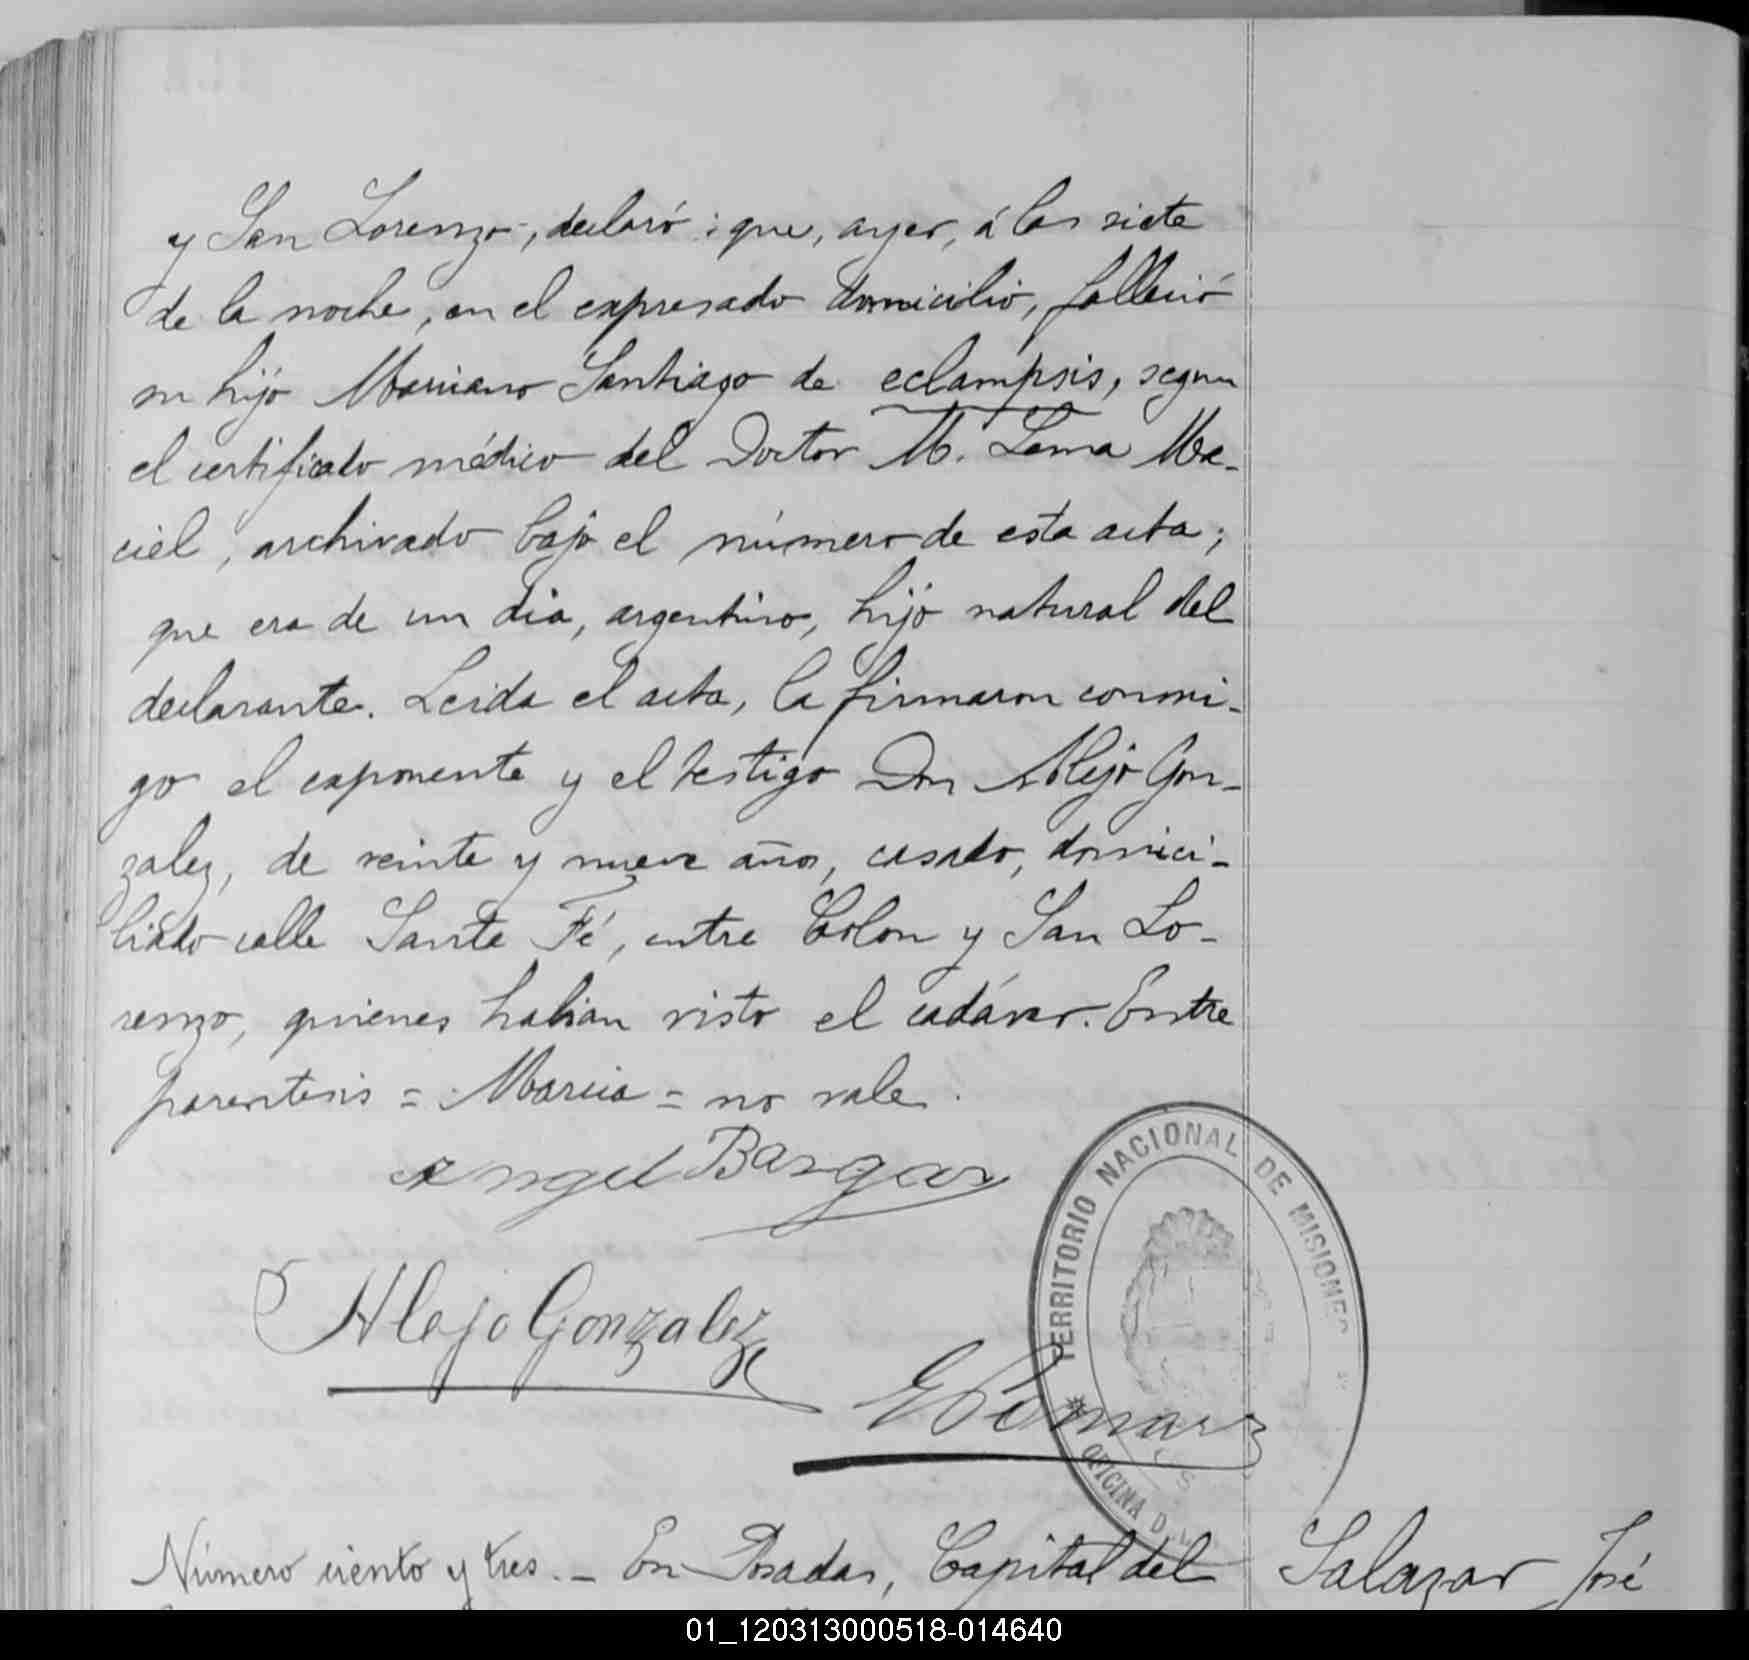 y San Lorenzo, declaró: que, ayer, á las siete
de la noche, en el expresado domicilio, falleció
su hijo Mariano Santiago de eclampsis, segun
el certificado médico del Doctor M. Lema Ma-
ciel, archivado bajo el número de esta acta;
que era de un dia, argentino, hijo natural del
declarante. Leida el acta, la firmaron conmi-
go el exponente y el testigo Don Alejo Gon-
zalez, de veinte y nueve años, casado, domici-
liado calle Santa Fé, entre Colon y San Lo-
renzo, quienes habian visto el cadáver. Entre
parentesis = Marcia = no vale.
Angel
Alejo Gonzalez
TERRITORIO NACIONAL DE MISIONES
OFICINA D
Número ciento y tres. - En Posadas, Capital del
Salazar José
01_120313000518-014640